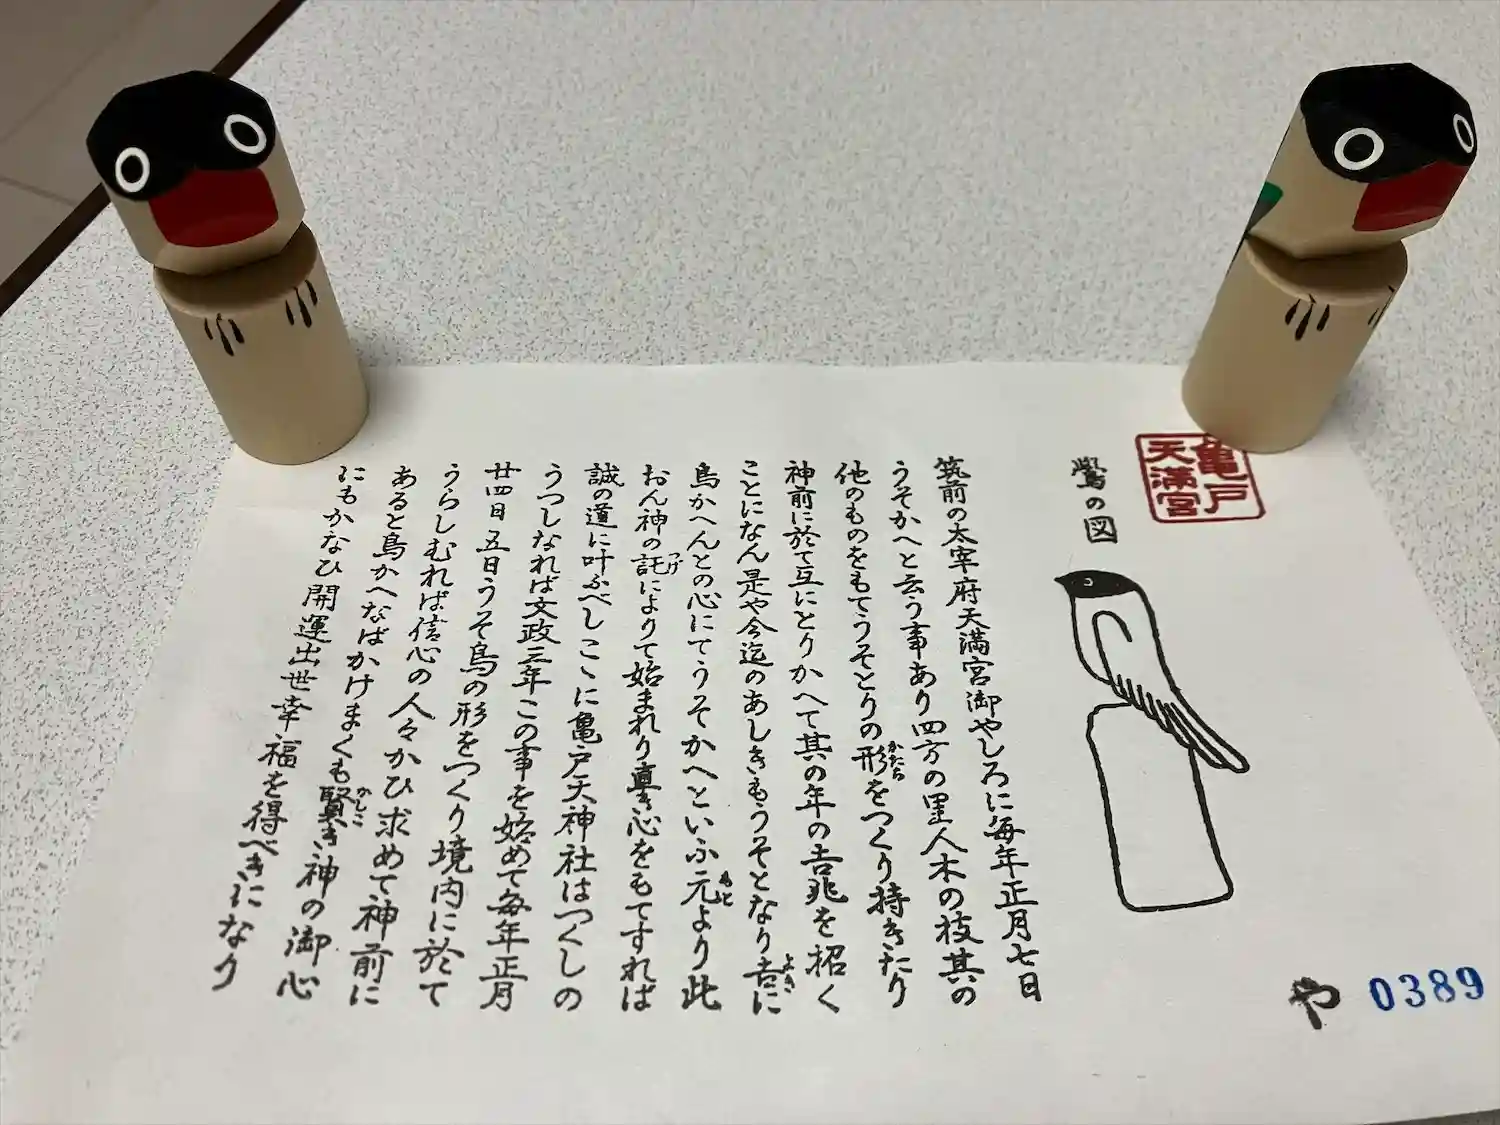 亀戸
天満宮
鷽の図
筑前の太宰府天満宮御やしろに毎年正月七日
うそかへと云う事あり四方の里人木の枝其の
他のものをもてうそとりの形をつくり持きたり
神前に於て互にとりかへて其の年の吉兆を招く
ことになん是や今迄のあしきもうそとなり吉に
鳥かへんとの心にてうそかへといふ元より此
おん神の託によりて始まれり直き心をもてすれば
誠の道に叶ふべしここに亀戸天神社はつくしの
うつしなれば文政三年この事を始めて毎年正月
廿四日五日うそ鳥の形をつくり境内に於て
うらしむれば信心の人々かひ求めて神前に
あると鳥かへなばかけまくも賢き神の御心
にもかなひ開運出世幸福を得べきになり
や 0389